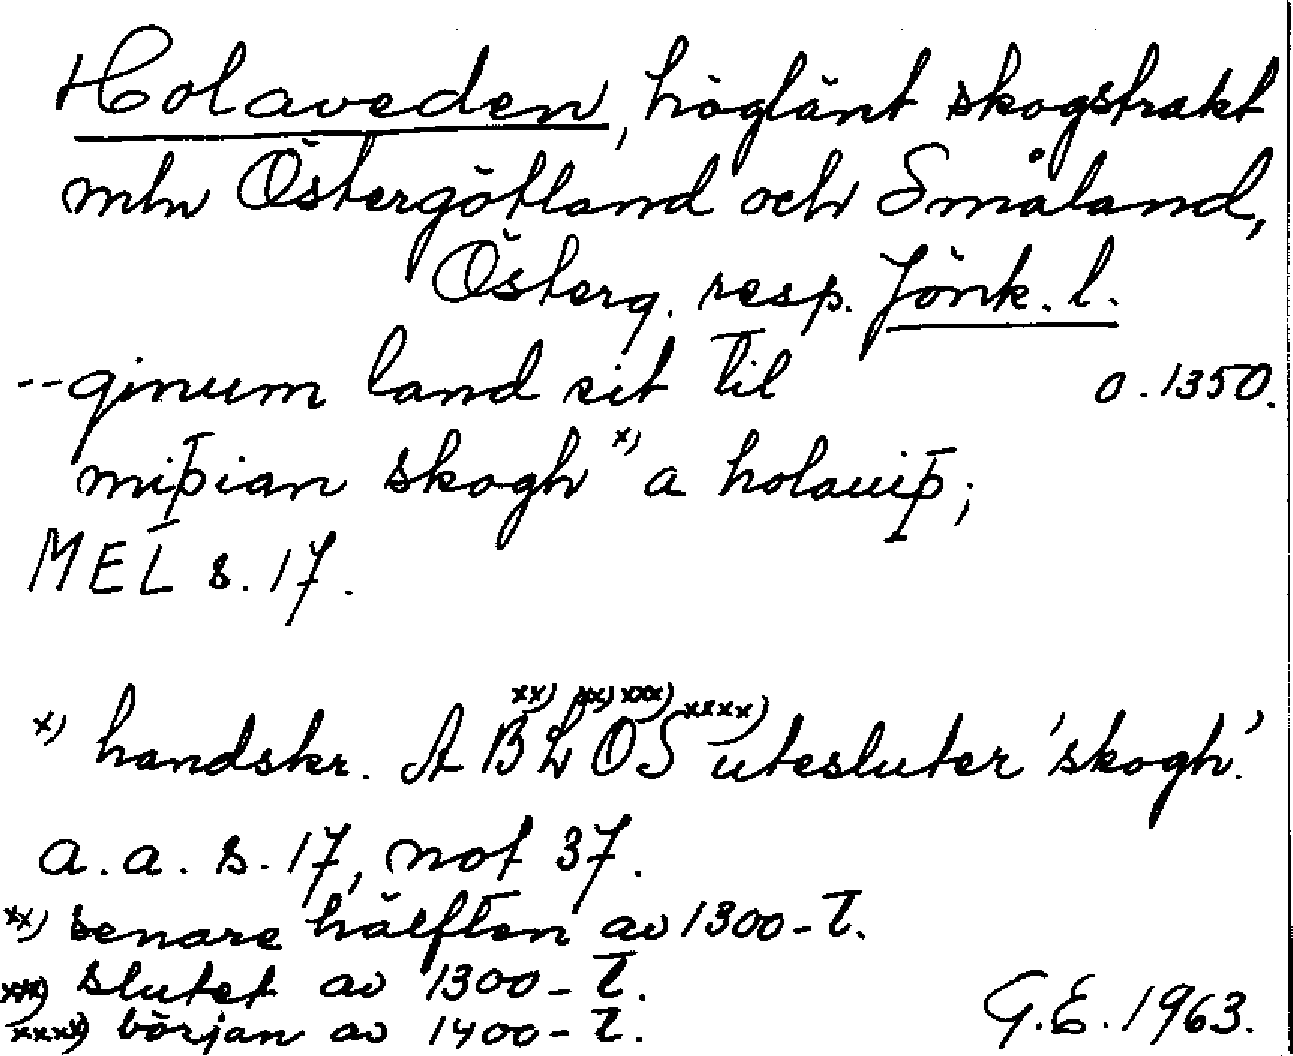 Holaveden, höglänt skogstrakt
mln Östergötland och Småland,
Österg. resp. Jönk. l.
--ginum land sit til o. 1350.
miþian skogh x) a holauiþ;
MEL s. 17.
x) handskr. A B xx) L xx) O xxx) S xxxx) utesluter 'skogh'.
a.a. s. 17, not 37.
xx) senare hälften av 1300-t.
xxx) slutet av 1300-t.
xxxx) början av 1400-t. G.E. 1963.